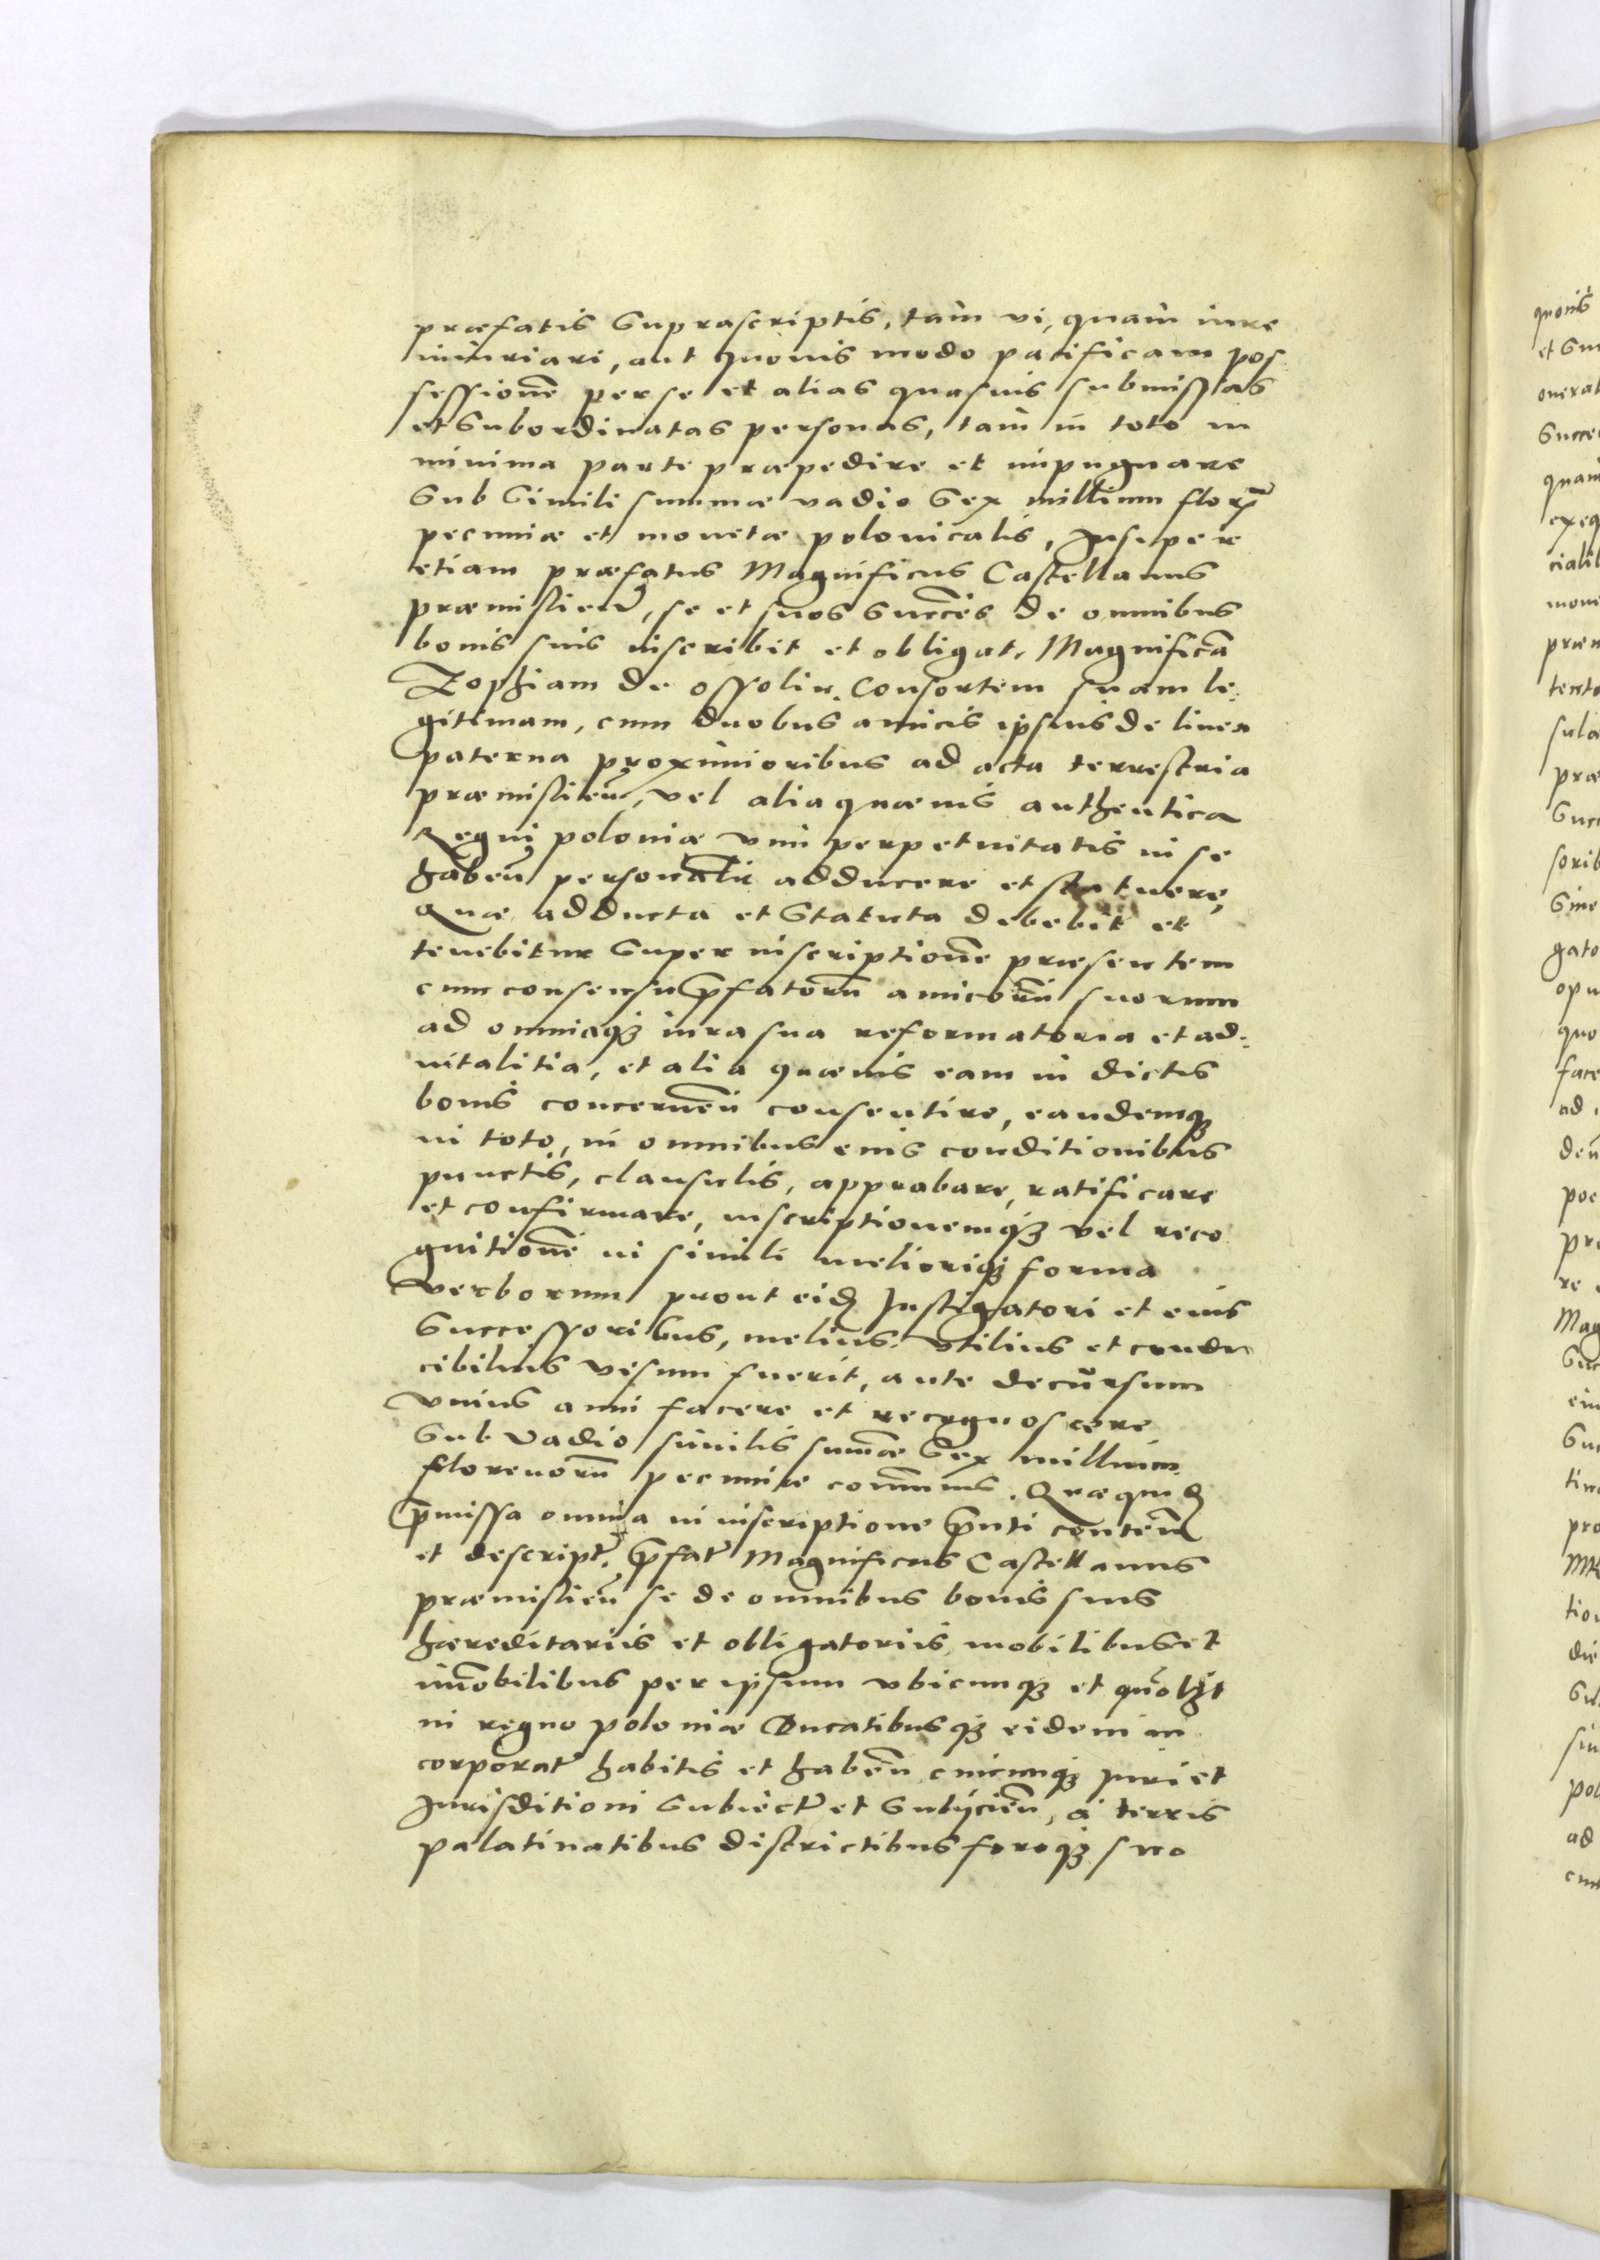 præfatis suprascriptis, tam vi, quam iure
iniuriari, aut quouis modo pacificam pos
sessionē per se et alias quasuis submissas
et subordinatas personas, tam in toto in
minima parte præpedire et impugnare
sub simili summæ vadio sex millium flor
pecuniæ et monetæ polonicalis, Insupere
etiam præfatus Magnificus Castellanus
præmislień, se et suos succēs de omnibus
bonis suis inscribit et obligat, Magnificā
Zophiam de ossolin Consortem suam le:
gitimam, cum duobus amicis ipsius de linea
paterna proximioribus ad acta terrestria
præmislień, vel alia quæuis authentica
Regni poloniæ vim perpetuitatis in se
habeñ personalir adducere et statuere,
Quæ adducta et statuta debebit et
tenebitur super inscriptionē præsentem
cum consensu p̄fatorū amicorū suorum
ad omniaq3 iura sua reformatoria et ad:
uitalitia, et alia quæuis eam in dictis
bonis concerneñ consentire, eandemq3
in toto, in omnibus eius conditionibus
punctis, clausulis, approbare, ratificare
et confirmare, inscriptionemq3 vel reco
gnitionē in simili melioriq3 forma
verborum prout eid Instigatori et eius
successoribus, melius, vtilius et condu
cibilius visum fuerit, ante decursum
vnius anni facere et recognoscere
sub vadio similis sum̄æ sex millium
florenorū pecuniæ com̄unis. Quæ quid
p̄missa omnia in inscriptione p̄nti conteñ
et descript. p̄fat Magnificus Castellanus
præmislień se de omnibus bonis suis
hæreditariis et obligatoriis mobilibus et
im̄obilibus per ipsum vbicunq3 et quōlꝫt
in regno poloniæ Ducatibusq3 eidem in
corporat habitis et habeñ cuicunq3 Iuri et
Iurisditioni subiect et subijcień, a terris
palatinatibus districtibus foroq3 suo